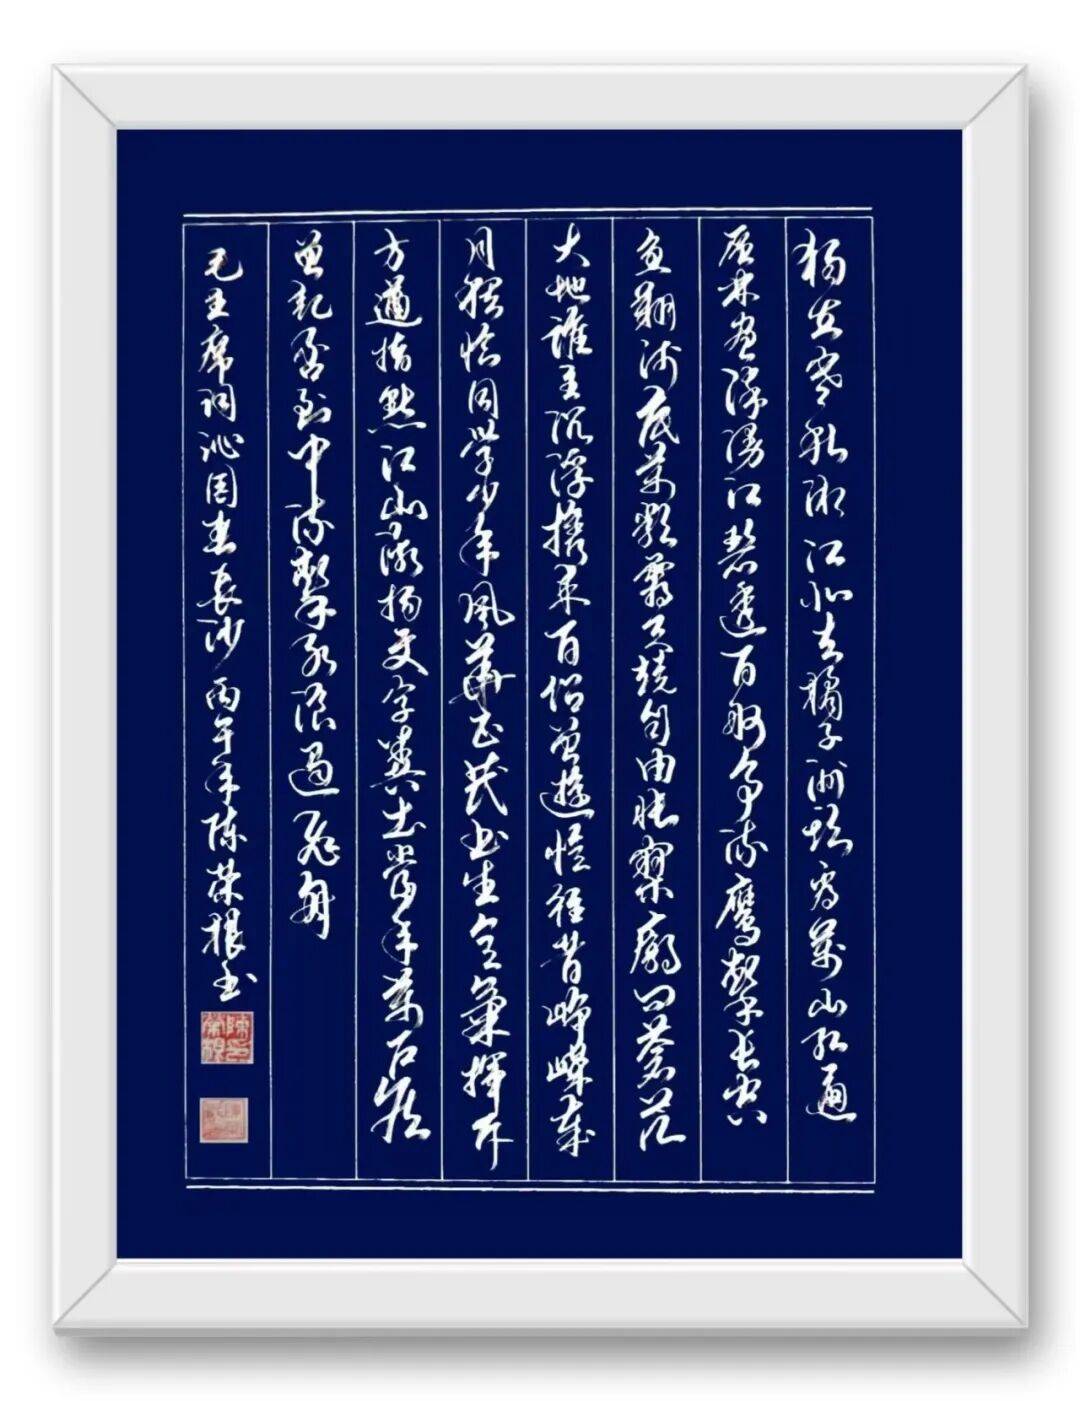 独立寒秋湘江北去橘子洲头看萬山红遍
层林尽染漫江碧透百舸争流鹰擊长空
鱼翔浅底萬类霜天竞自由怅寥廓问苍茫
大地谁主沉浮携来百侣曾遊忆往昔峥嵘岁
月稠恰同学少年风華正茂书生意氣揮斥
方遒指点江山激扬文字粪土当年萬户侯
曾记否到中流擊水浪遏飞舟
毛主席词沁园春长沙 丙午年陈荣根书